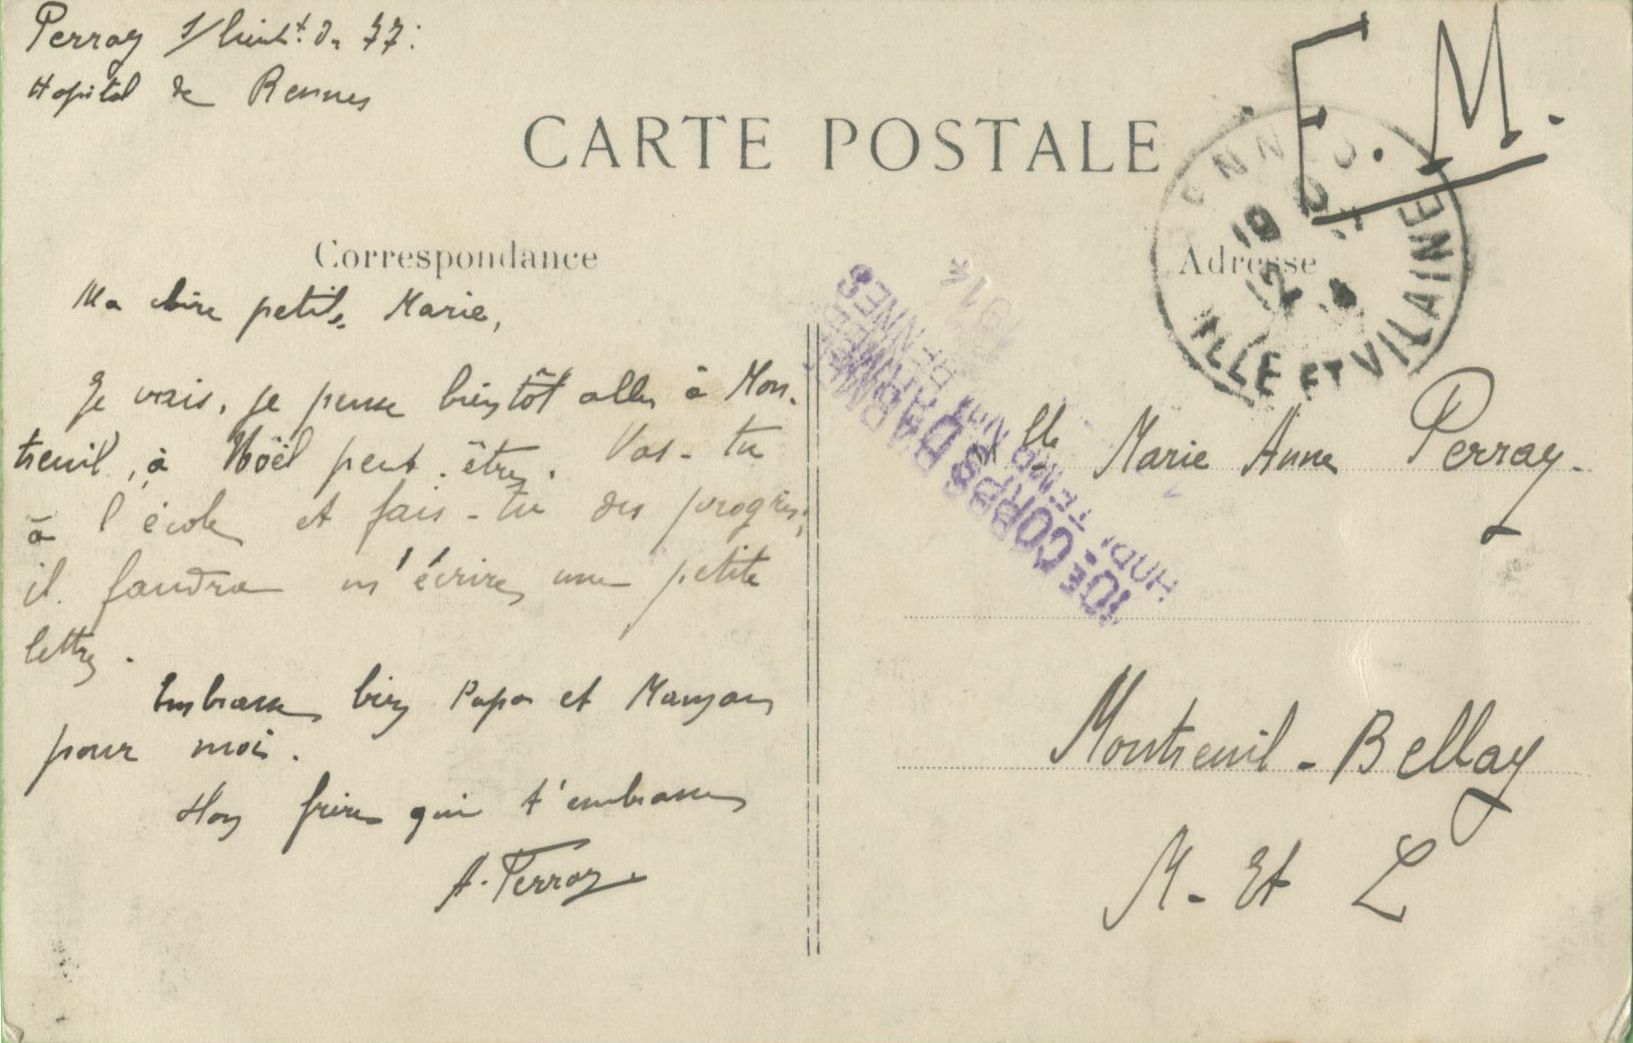 Perray S/Lieut.t du 77:
Hopital de Rennes
F.M.
CARTE POSTALE
Correspondance
Adresse
RENNES
19
12 - 14
ILLE ET VILAINE
10E CORPS D'ARMEE
RENNES
1914
Ma chère petite Marie,
Je vais, je pense bientôt aller à Mon-
treuil, à Noël peut-être. Vas-tu
à l'école et fais-tu des progrès,
il faudra m'écrire une petite
lettre.
Embrasse bien Papa et Maman
pour moi.
Ton frère qui t'embrasse
A. Perray.
Mlle Marie Anne Perray-
Montreuil-Bellay
M- Et L